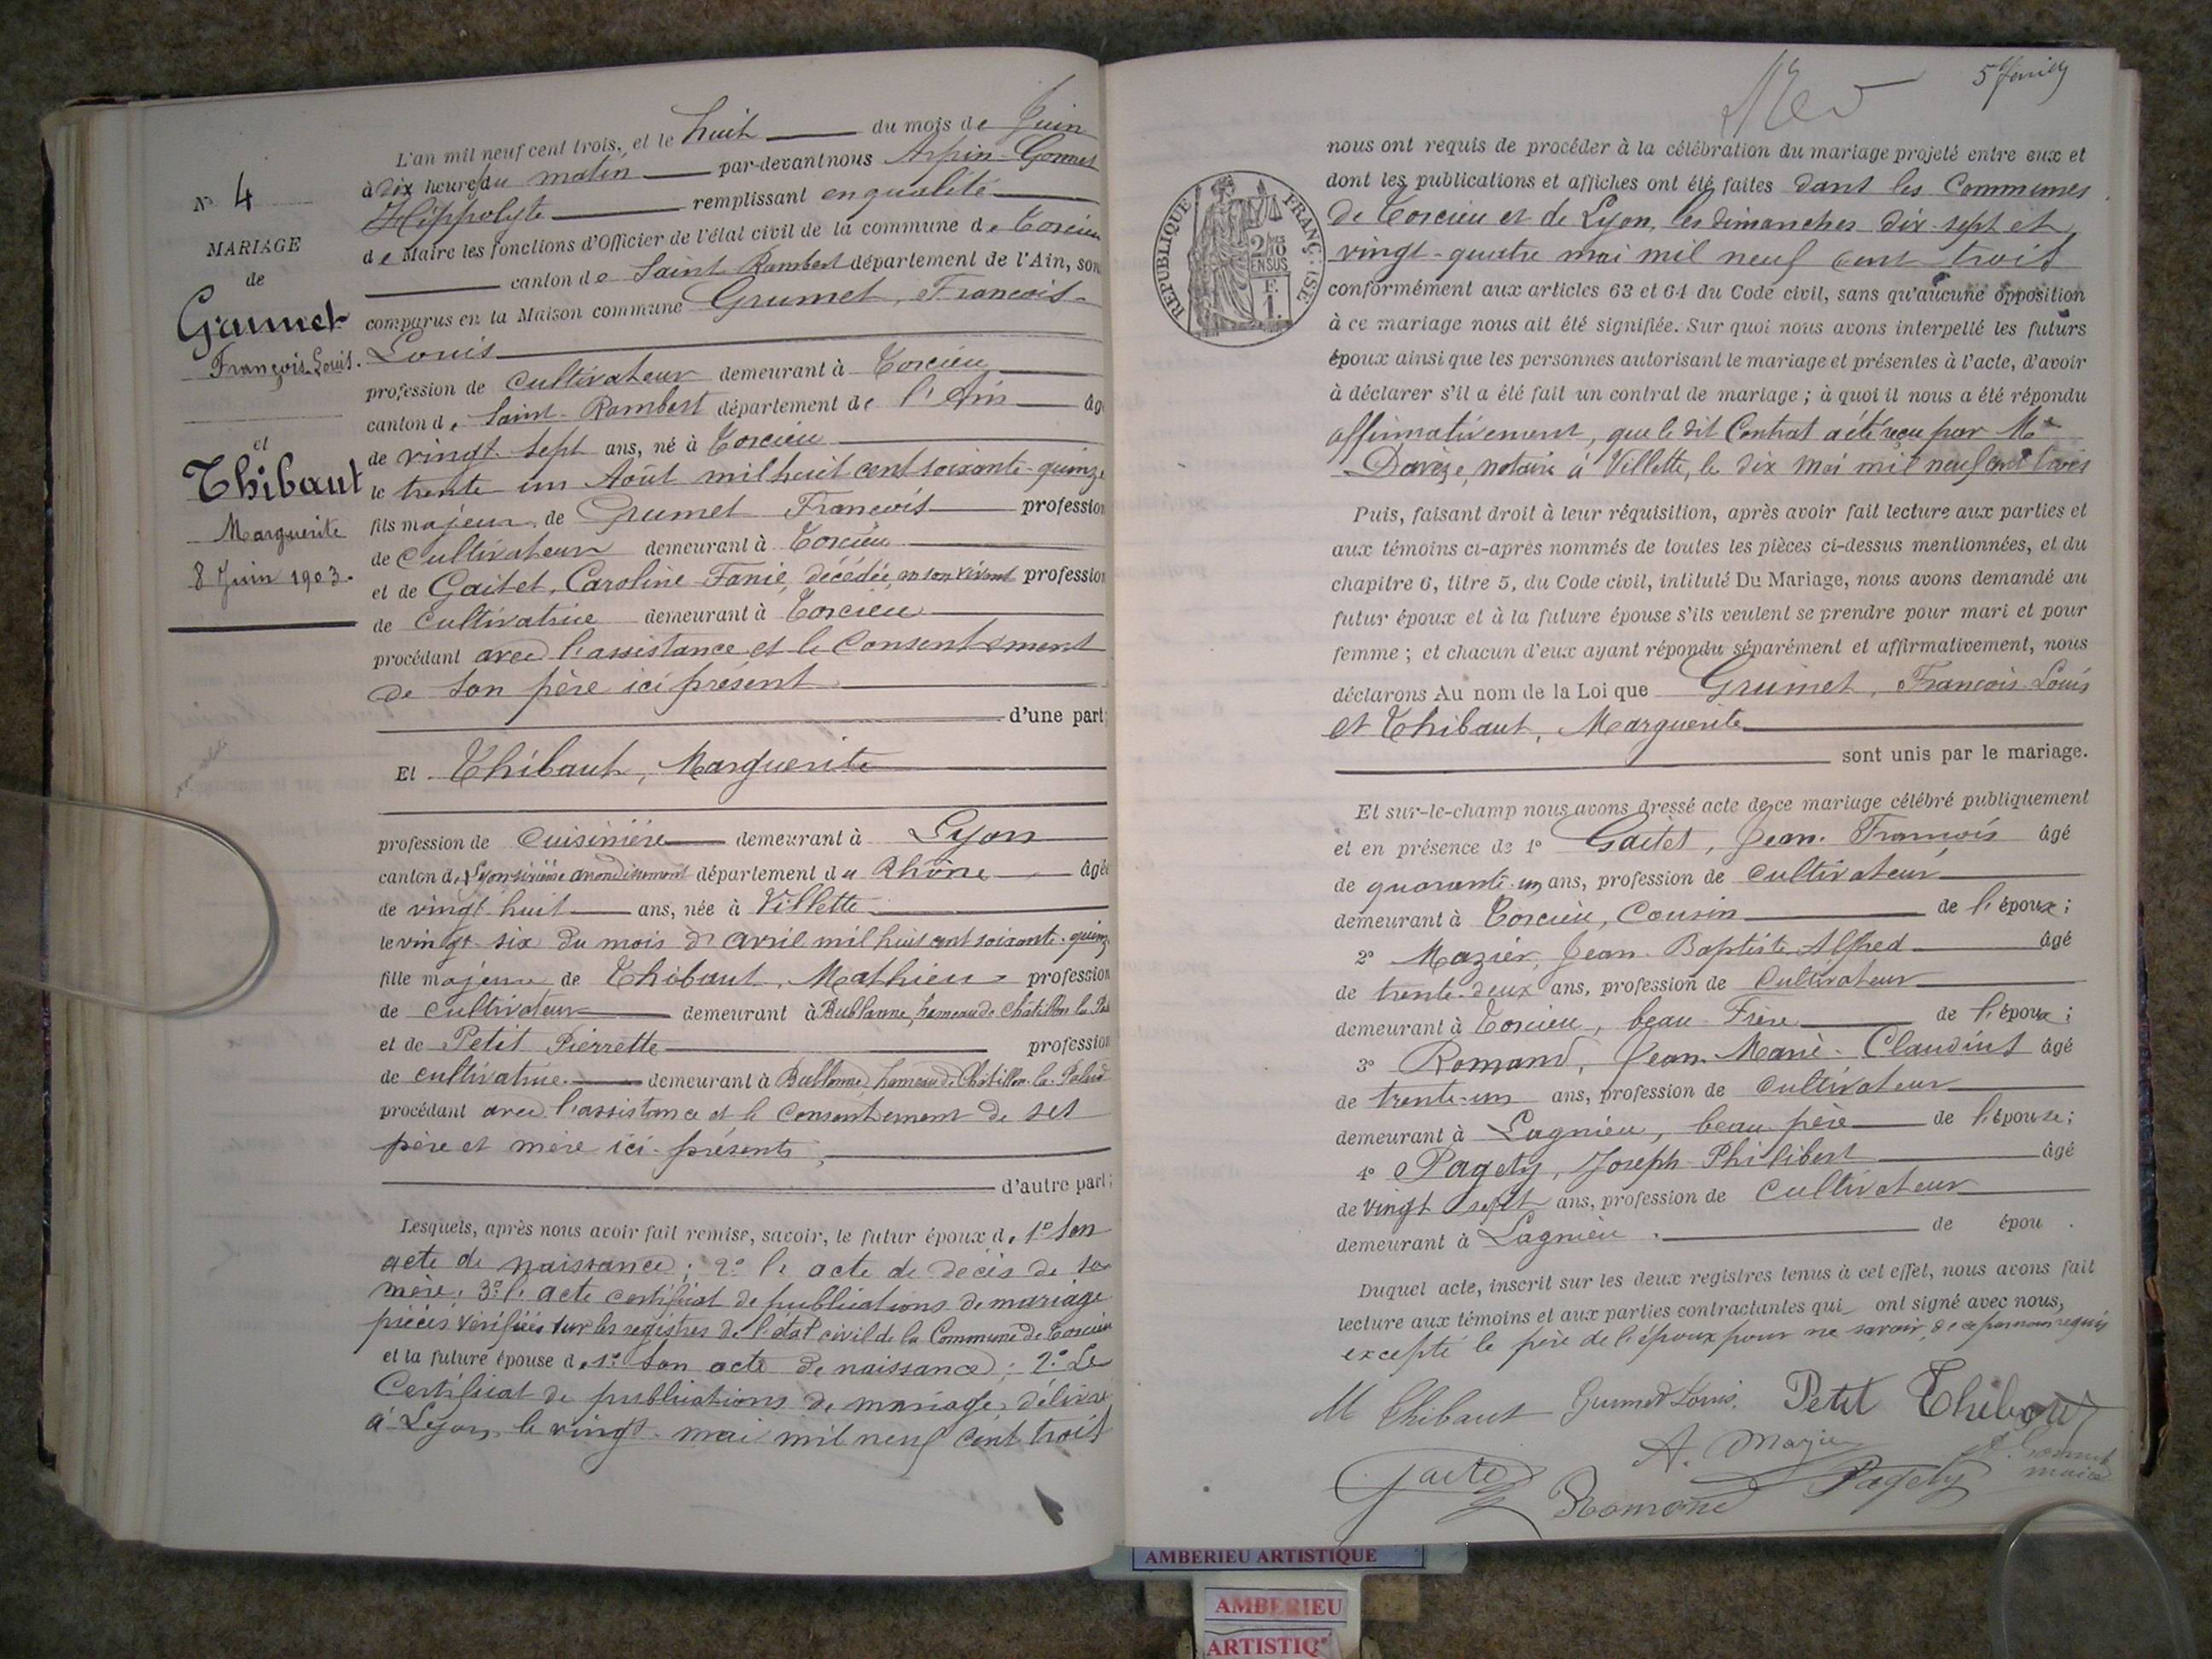 N° 4
MARIAGE
de
Grumet
François Louis.
et
Thibaut
Marguerite
8 Juin 1903.
L'an mil neuf cent trois, et le huit du mois de Juin
à dix heures du matin par-devant nous Arpin-Gonnet
Hippolyte remplissant en qualité
de Maire les fonctions d'Officier de l'état civil de la commune de Torcieu
canton de Saint Rambert département de l'Ain, son
comparus en la Maison commune Grumet, François-
Louis
profession de cultivateur demeurant à Torcieu
canton de Saint-Rambert département de l'Ain âg
de vingt-sept ans, né à Torcieu
le trente un Août mil huit cent soixante-quinze
fils majeur de Grumet François profession
de cultivateur demeurant à Torcieu
et de Gaitet, Caroline Fanie, décédée, en son vivant profession
de cultivatrice demeurant à Torcieu
procédant avec l'assistance et le consentement
de son père ici présent
d'une part;
Et Thibaut, Marguerite
profession de Cuisinière demeurant à Lyon
canton de Lyon sixième arrondissement département du Rhône âgée
de vingt huit ans, née à Villette
le vingt-six du mois d'avril mil huit cent soixante-quinze
fille majeure de Thibaut, Mathieu profession
de cultivateur demeurant à Bublanne, hameau de Châtillon la Palud
et de Petit Pierrette profession
de cultivatrice demeurant à Bublanne, hameau de Châtillon-la-Palud
procédant avec l'assistance et le consentement de ses
père et mère ici présents,
d'autre part;
Lesquels, après nous avoir fait remise, savoir, le futur époux de 1° son
acte de naissance; 2° l'acte de décès de sa
mère; 3° l'acte certificat de publications de mariage
pièces vérifiées sur les registres de l'état civil de la Commune de Torcieu
et la future épouse de 1° son acte de naissance; 2° Le
Certificat de publications de mariage, délivré
à Lyon, le vingt-mai mil neuf cent trois
REPUBLIQUE FRANÇAISE
2/10
EN SUS
F.
1.
nous ont requis de procéder à la célébration du mariage projeté entre eux et
dont les publications et affiches ont été faites dans les Communes
de Torcieu et de Lyon, les dimanches dix-sept et
vingt-quatre mai mil neuf cent trois
conformément aux articles 63 et 64 du Code civil, sans qu'aucune opposition
à ce mariage nous ait été signifiée. Sur quoi nous avons interpellé les futurs
époux ainsi que les personnes autorisant le mariage et présentes à l'acte, d'avoir
à déclarer s'il a été fait un contrat de mariage; à quoi il nous a été répondu
affirmativement, que le dit Contrat a été reçu par Me
notaire à Villette, le dix mai mil neuf cent trois
Puis, faisant droit à leur réquisition, après avoir fait lecture aux parties et
aux témoins ci-après nommés de toutes les pièces ci-dessus mentionnées, et du
chapitre 6, titre 5, du Code civil, intitulé Du Mariage, nous avons demandé au
futur époux et à la future épouse s'ils veulent se prendre pour mari et pour
femme; et chacun d'eux ayant répondu séparément et affirmativement, nous
déclarons Au nom de la Loi que Grumet, François-Louis
et Thibaut, Marguerite
sont unis par le mariage.
Et sur-le-champ nous avons dressé acte de ce mariage célébré publiquement
et en présence de 1° Gaitet, Jean-François âgé
de quarante-un ans, profession de cultivateur
demeurant à Torcieu, Cousin de l'époux;
2° Mazier, Jean-Baptiste Alfred âgé
de trente-deux ans, profession de cultivateur
demeurant à Torcieu, beau-frère de l'époux;
3° Romand, Jean-Marie-Claudius âgé
de trente-un ans, profession de cultivateur
demeurant à Lagnieu, beau-frère de l'épouse;
4° Pagety, Joseph Philibert âgé
de vingt sept ans, profession de cultivateur
demeurant à Lagnieu. de épou .
Duquel acte, inscrit sur les deux registres tenus à cet effet, nous avons fait
lecture aux témoins et aux parties contractantes qui ont signé avec nous,
excepté le père de l'époux pour ne savoir, de ce par nous requis
M Thibaut Grumet Louis. Petit Thibaut
A. Mazier
Gaitet Romand Pagety Gonnet
maire
AMBERIEU ARTISTIQUE
AMBERIEU
ARTISTIQ